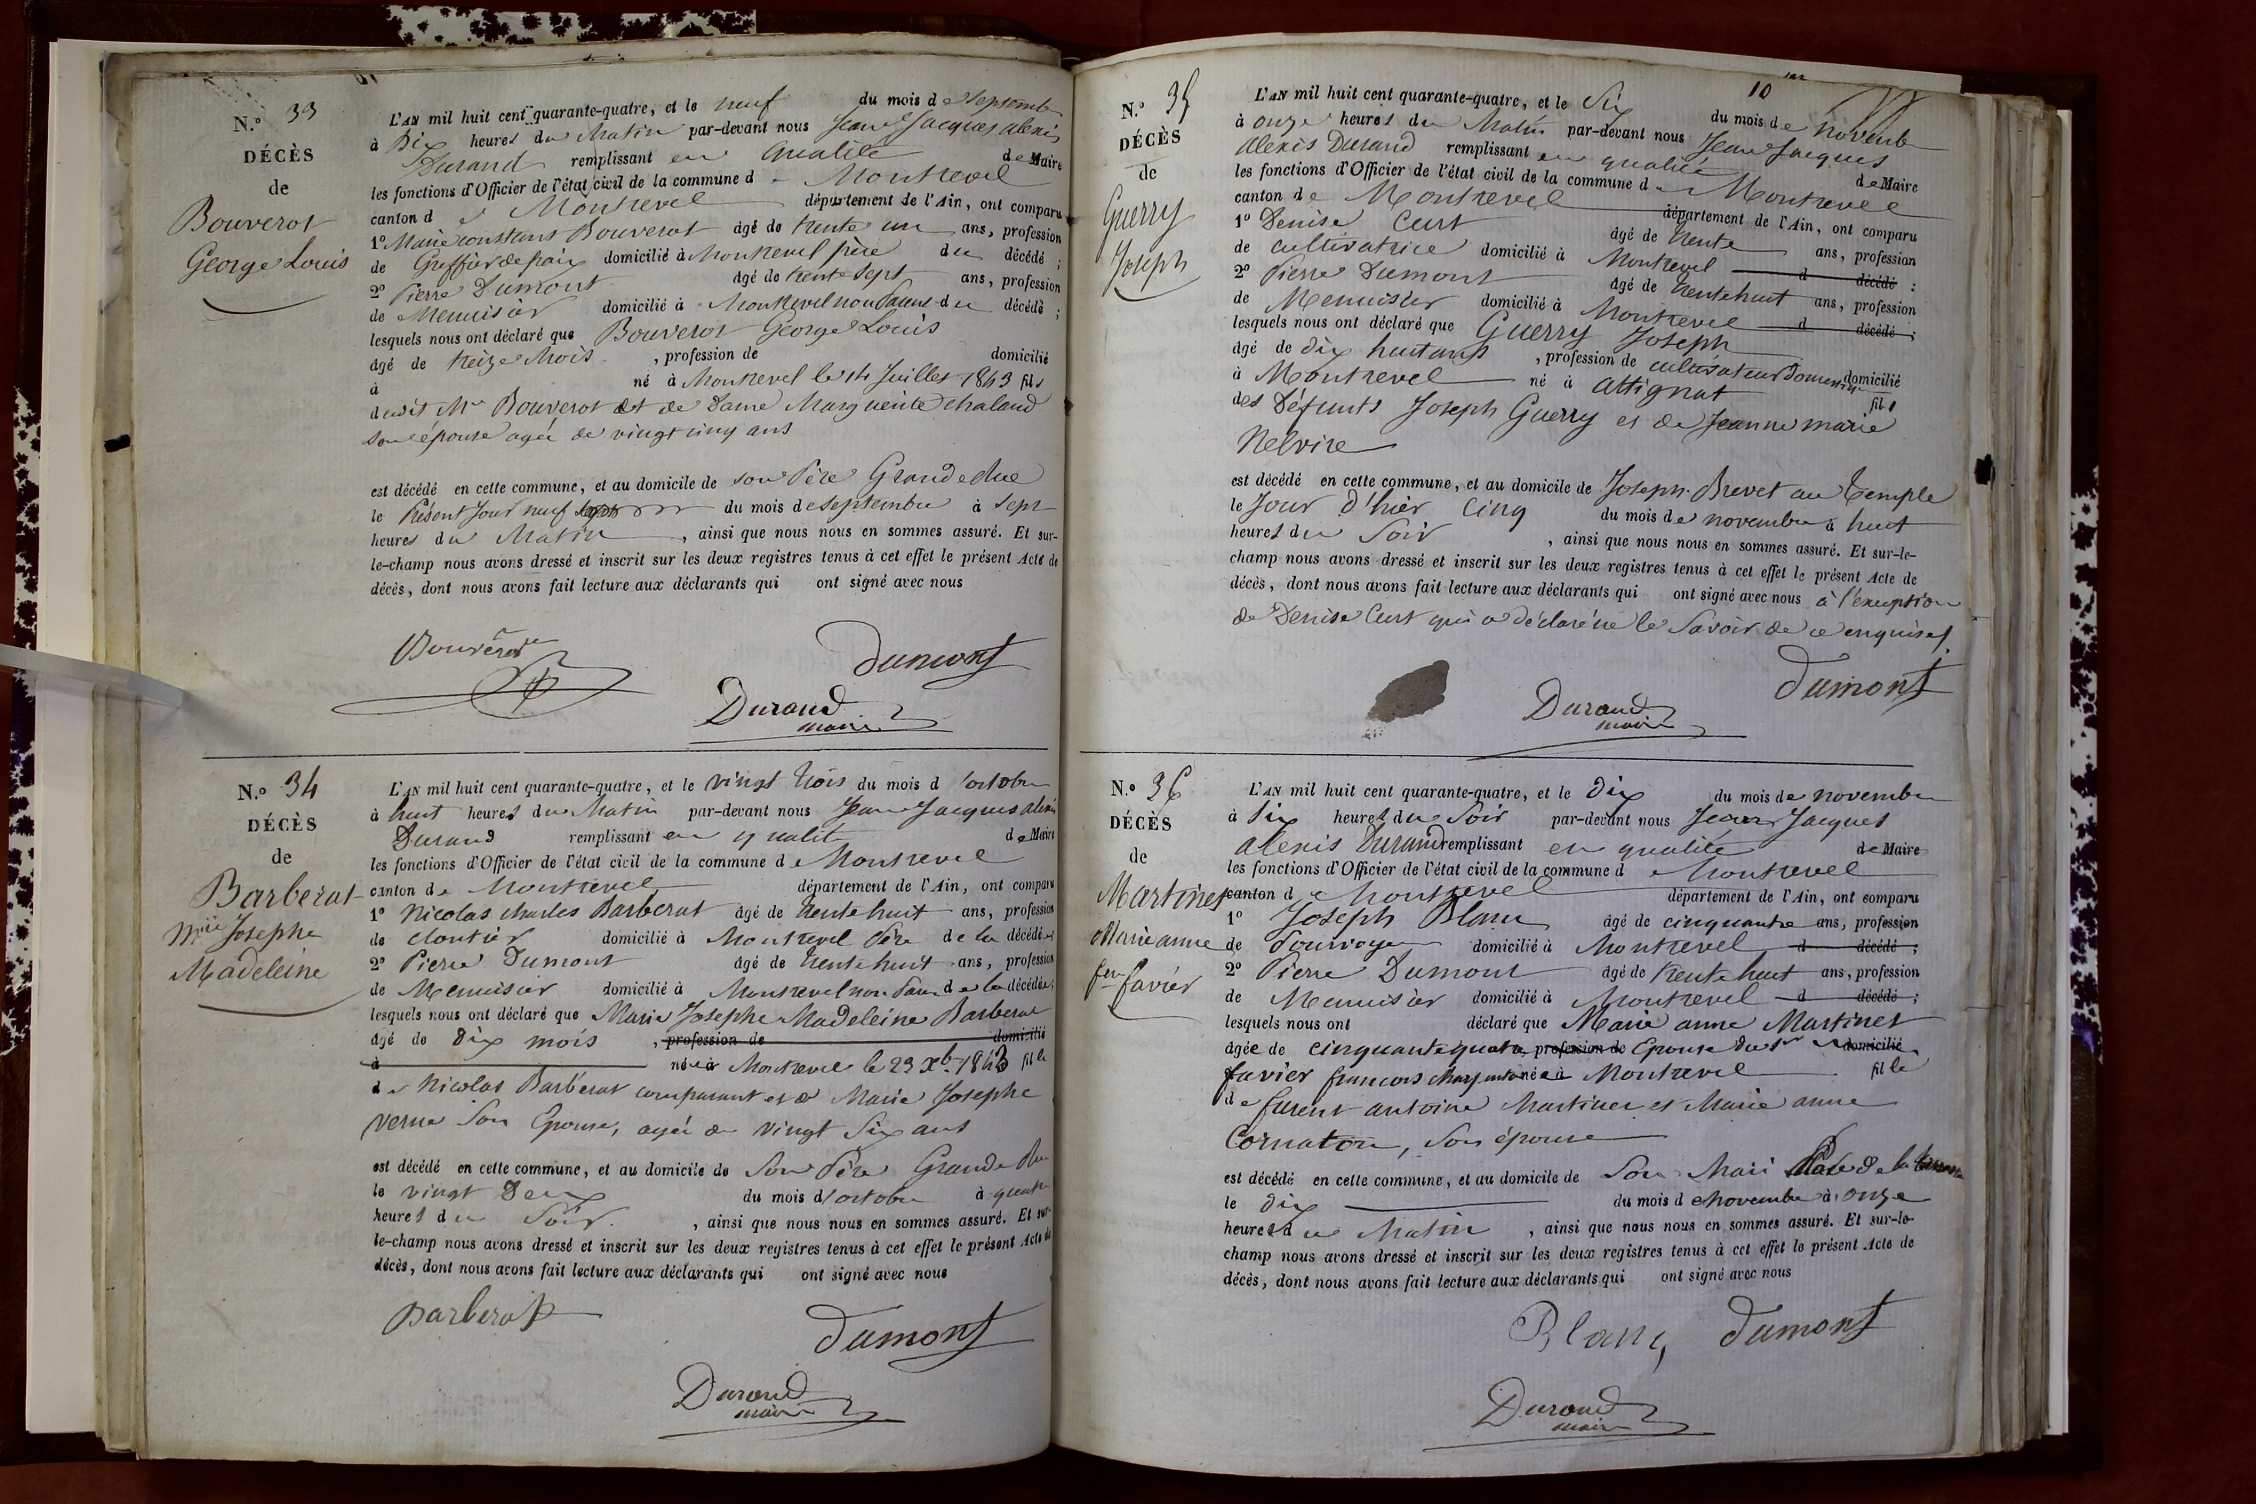 N.º 33
DÉCÈS
de
Bouverot
George Louis
L'AN mil huit cent quarante-quatre, et le neuf du mois de septembre
à Dix heures du Matin par-devant nous Jean Jacques alexis
Durand remplissant en qualité de Maire
les fonctions d'Officier de l'état civil de la commune de Montrevel
canton de Montrevel département de l'Ain, ont comparu
1º Marie constant Bouverot âgé de trente un ans, profession
de Greffier de paix domicilié à Montrevel père du décédé ;
2º Pierre Dumont âgé de trente sept ans, profession
de Menuisier domicilié à Montrevel non Parent du décédé ;
lesquels nous ont déclaré que Bouverot George Louis
âgé de treize Mois , profession de domicilié
à né à Montrevel le 14 Juillet 1843 fils
dudit Mr Bouverot et de Dame Marguerite chaland
son épouse agée de vingt cinq ans
est décédé en cette commune, et au domicile de son Père Grande Rue
le Présent Jour neuf du mois de septembre à sept
heures du Matin , ainsi que nous nous en sommes assuré. Et sur-
le-champ nous avons dressé et inscrit sur les deux registres tenus à cet effet le présent Acte de
décès, dont nous avons fait lecture aux déclarants qui ont signé avec nous
Bouverot
Dumont
Durand
maire
N.º 34
DÉCÈS
de
Barberat
Mrie Josephe
Madeleine
L'AN mil huit cent quarante-quatre, et le vingt trois du mois d'octobre
à huit heures du Matin par-devant nous Jean Jacques alexis
Durand remplissant en qualité de Maire
les fonctions d'Officier de l'état civil de la commune de Montrevel
canton de Montrevel département de l'Ain, ont comparu
1º Nicolas charles Barberat âgé de trente huit ans, profession
de cloutier domicilié à Montrevel Père de la décédée
2º Pierre Dumont âgé de trente huit ans, profession
de Menuisier domicilié à Montrevel non Parent de la décédée ;
lesquels nous ont déclaré que Marie Josephe Madeleine Barberat
âgé de dix mois , profession de domicilié
à née à Montrevel le 23 Xb. 1843 fille
de Nicolas Barberat comparant et de Marie Josephe
Verne Son Epouse, agée de vingt Six ans
est décédé en cette commune, et au domicile de Son Père Grande Rue
le vingt Deux du mois d'octobre à quatre
heures du Soir , ainsi que nous nous en sommes assuré. Et sur-
le-champ nous avons dressé et inscrit sur les deux registres tenus à cet effet le présent Acte de
décès, dont nous avons fait lecture aux déclarants qui ont signé avec nous
Barberat
Dumont
Durand
maire
10
N.º 35
DÉCÈS
de
Guerry
Joseph
L'AN mil huit cent quarante-quatre, et le Six du mois de novembre
à onze heures du Matin par-devant nous Jean Jacques
Alexis Durand remplissant en qualité de Maire
les fonctions d'Officier de l'état civil de la commune de Montrevel
canton de Montrevel département de l'Ain, ont comparu
1º Denise Curt âgé de trente ans, profession
de cultivatrice domicilié à Montrevel d décédé ;
2º Pierre Dumont âgé de trente huit ans, profession
de Menuisier domicilié à Montrevel d décédé ;
lesquels nous ont déclaré que Guerry Joseph
âgé de dix huit ans , profession de cultivateur Domestique domicilié
à Montrevel né à Attignat fils
des Défunts Joseph Guerry et de Jeanne marie
Nelvire
est décédé en cette commune, et au domicile de Joseph Brevet au Temple
le Jour d'hier Cinq du mois de novembre à huit
heures du Soir , ainsi que nous nous en sommes assuré. Et sur-le-
champ nous avons dressé et inscrit sur les deux registres tenus à cet effet le présent Acte de
décès, dont nous avons fait lecture aux déclarants qui ont signé avec nous à l'exception
de Denise Curt qui a déclaré ne le Savoir de ce enquise.
Dumont
Durand
maire
N.º 36
DÉCÈS
de
Martinet
Marie anne
fme favier
L'AN mil huit cent quarante-quatre, et le Dix du mois de novembre
à Six heures du Soir par-devant nous Jean Jacques
Alexis Durand remplissant en qualité de Maire
les fonctions d'Officier de l'état civil de la commune de Montrevel
canton de Montrevel département de l'Ain, ont comparu
1º Joseph Blanc âgé de cinquante ans, profession
de domicilié à Montrevel d décédé ;
2º Pierre Dumont âgé de trente huit ans, profession
de Menuisier domicilié à Montrevel d décédé ;
lesquels nous ont déclaré que Marie anne Martinet
âgée de cinquante quatre profession de Epouse du Sr domicilié
favier francois née à Montrevel fille
de Antoine Martinet et Marie anne
Cornaton, Son épouse
est décédé en cette commune, et au domicile de Son Mari de la
le dix du mois de Novembre à onze
heures du Matin , ainsi que nous nous en sommes assuré. Et sur-le-
champ nous avons dressé et inscrit sur les deux registres tenus à cet effet le présent Acte de
décès, dont nous avons fait lecture aux déclarants qui ont signé avec nous
Blanc Dumont
Durand
maire